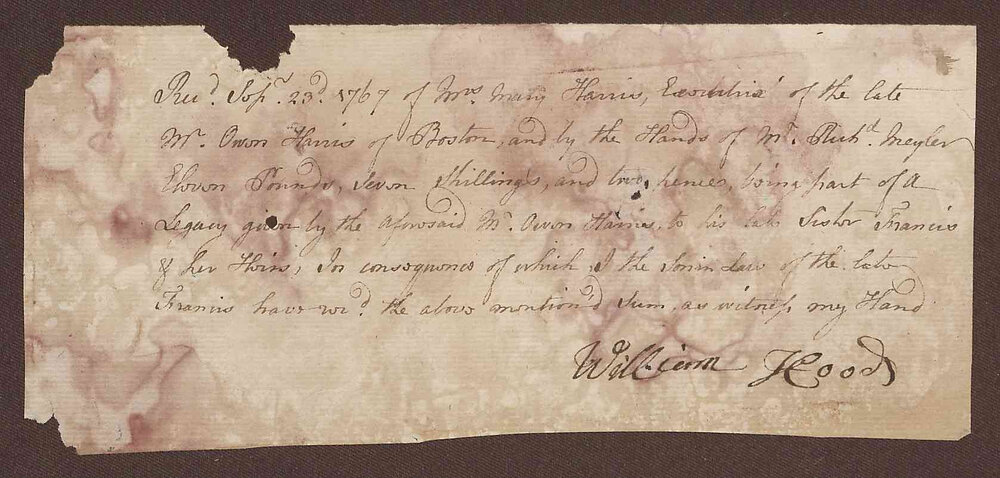 Rec.d Sep.r 23.d 1767 of Mrs. Mary Harris, Executrix of the late
Mr. Owen Harris of Boston, and by the Hands of Mr. Rich.d Meyler
Eleven Pounds, Seven Shillings, and two pence, being part of a
Legacy given by the Aforesaid Mr. Owen Harris, to his late Sister Francis
& her Heirs, In consequence of which, I the Son in Law of the late
Francis have rec.d the above mention'd Sum, as witness my Hand
William Hood